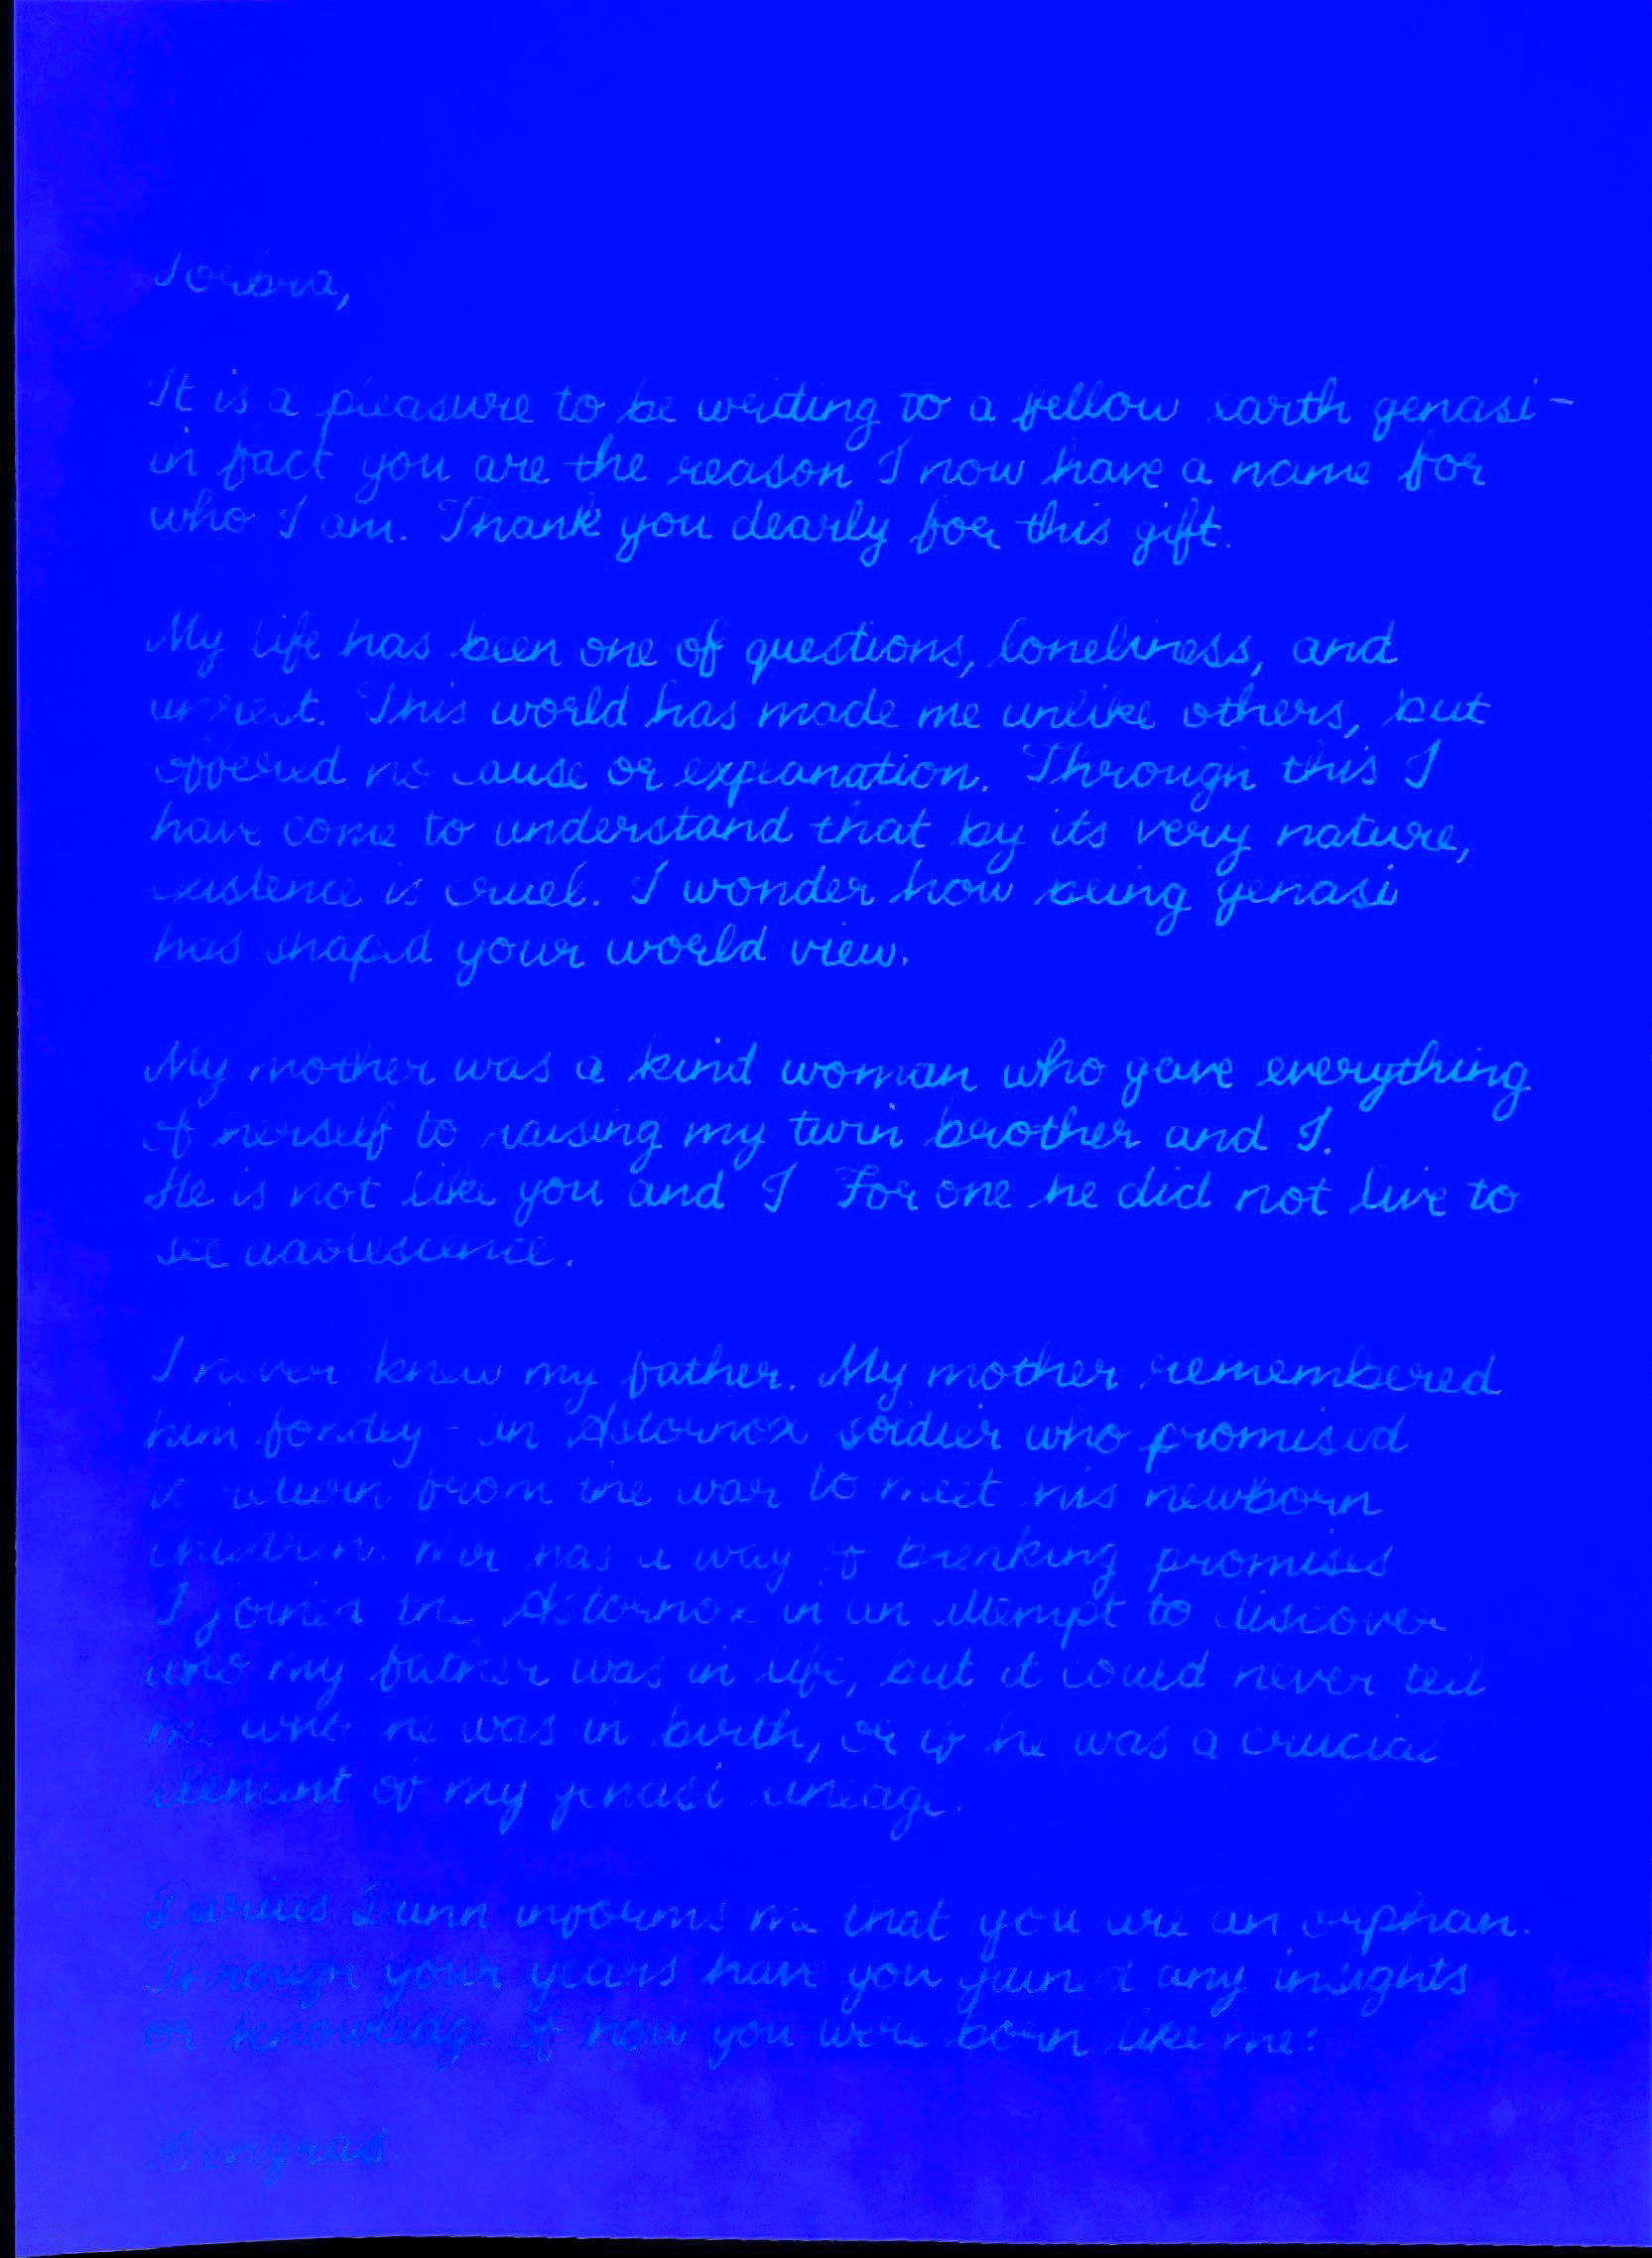 Torbra,
It is a pleasure to be writing to a fellow earth genasi-
in fact you are the reason I now have a name for
who I am. Thank you dearly for this gift.
My life has been one of questions, loneliness, and
unrest. This world has made me unlike others, but
offered no cause or explanation. Through this I
have come to understand that by its very nature,
existence is cruel. I wonder how being genasi
has shaped your world view.
My mother was a kind woman who gave everything
of herself to raising my twin brother and I.
He is not like you and I For one he did not live to
see adolescence.
I never knew my father. My mother remembered
him fondly - an Astornox soldier who promised
to return from the war to meet his newborn
children. War has a way of breaking promises
I joined the Astornox in an attempt to discover
who my father was in life, but it could never tell
me who he was in birth, or if he was a crucial
element of my genasi lineage.
Darius Dunn informs me that you are an orphan.
Through your years have you gained any insights
or knowledge of how you were born like me?